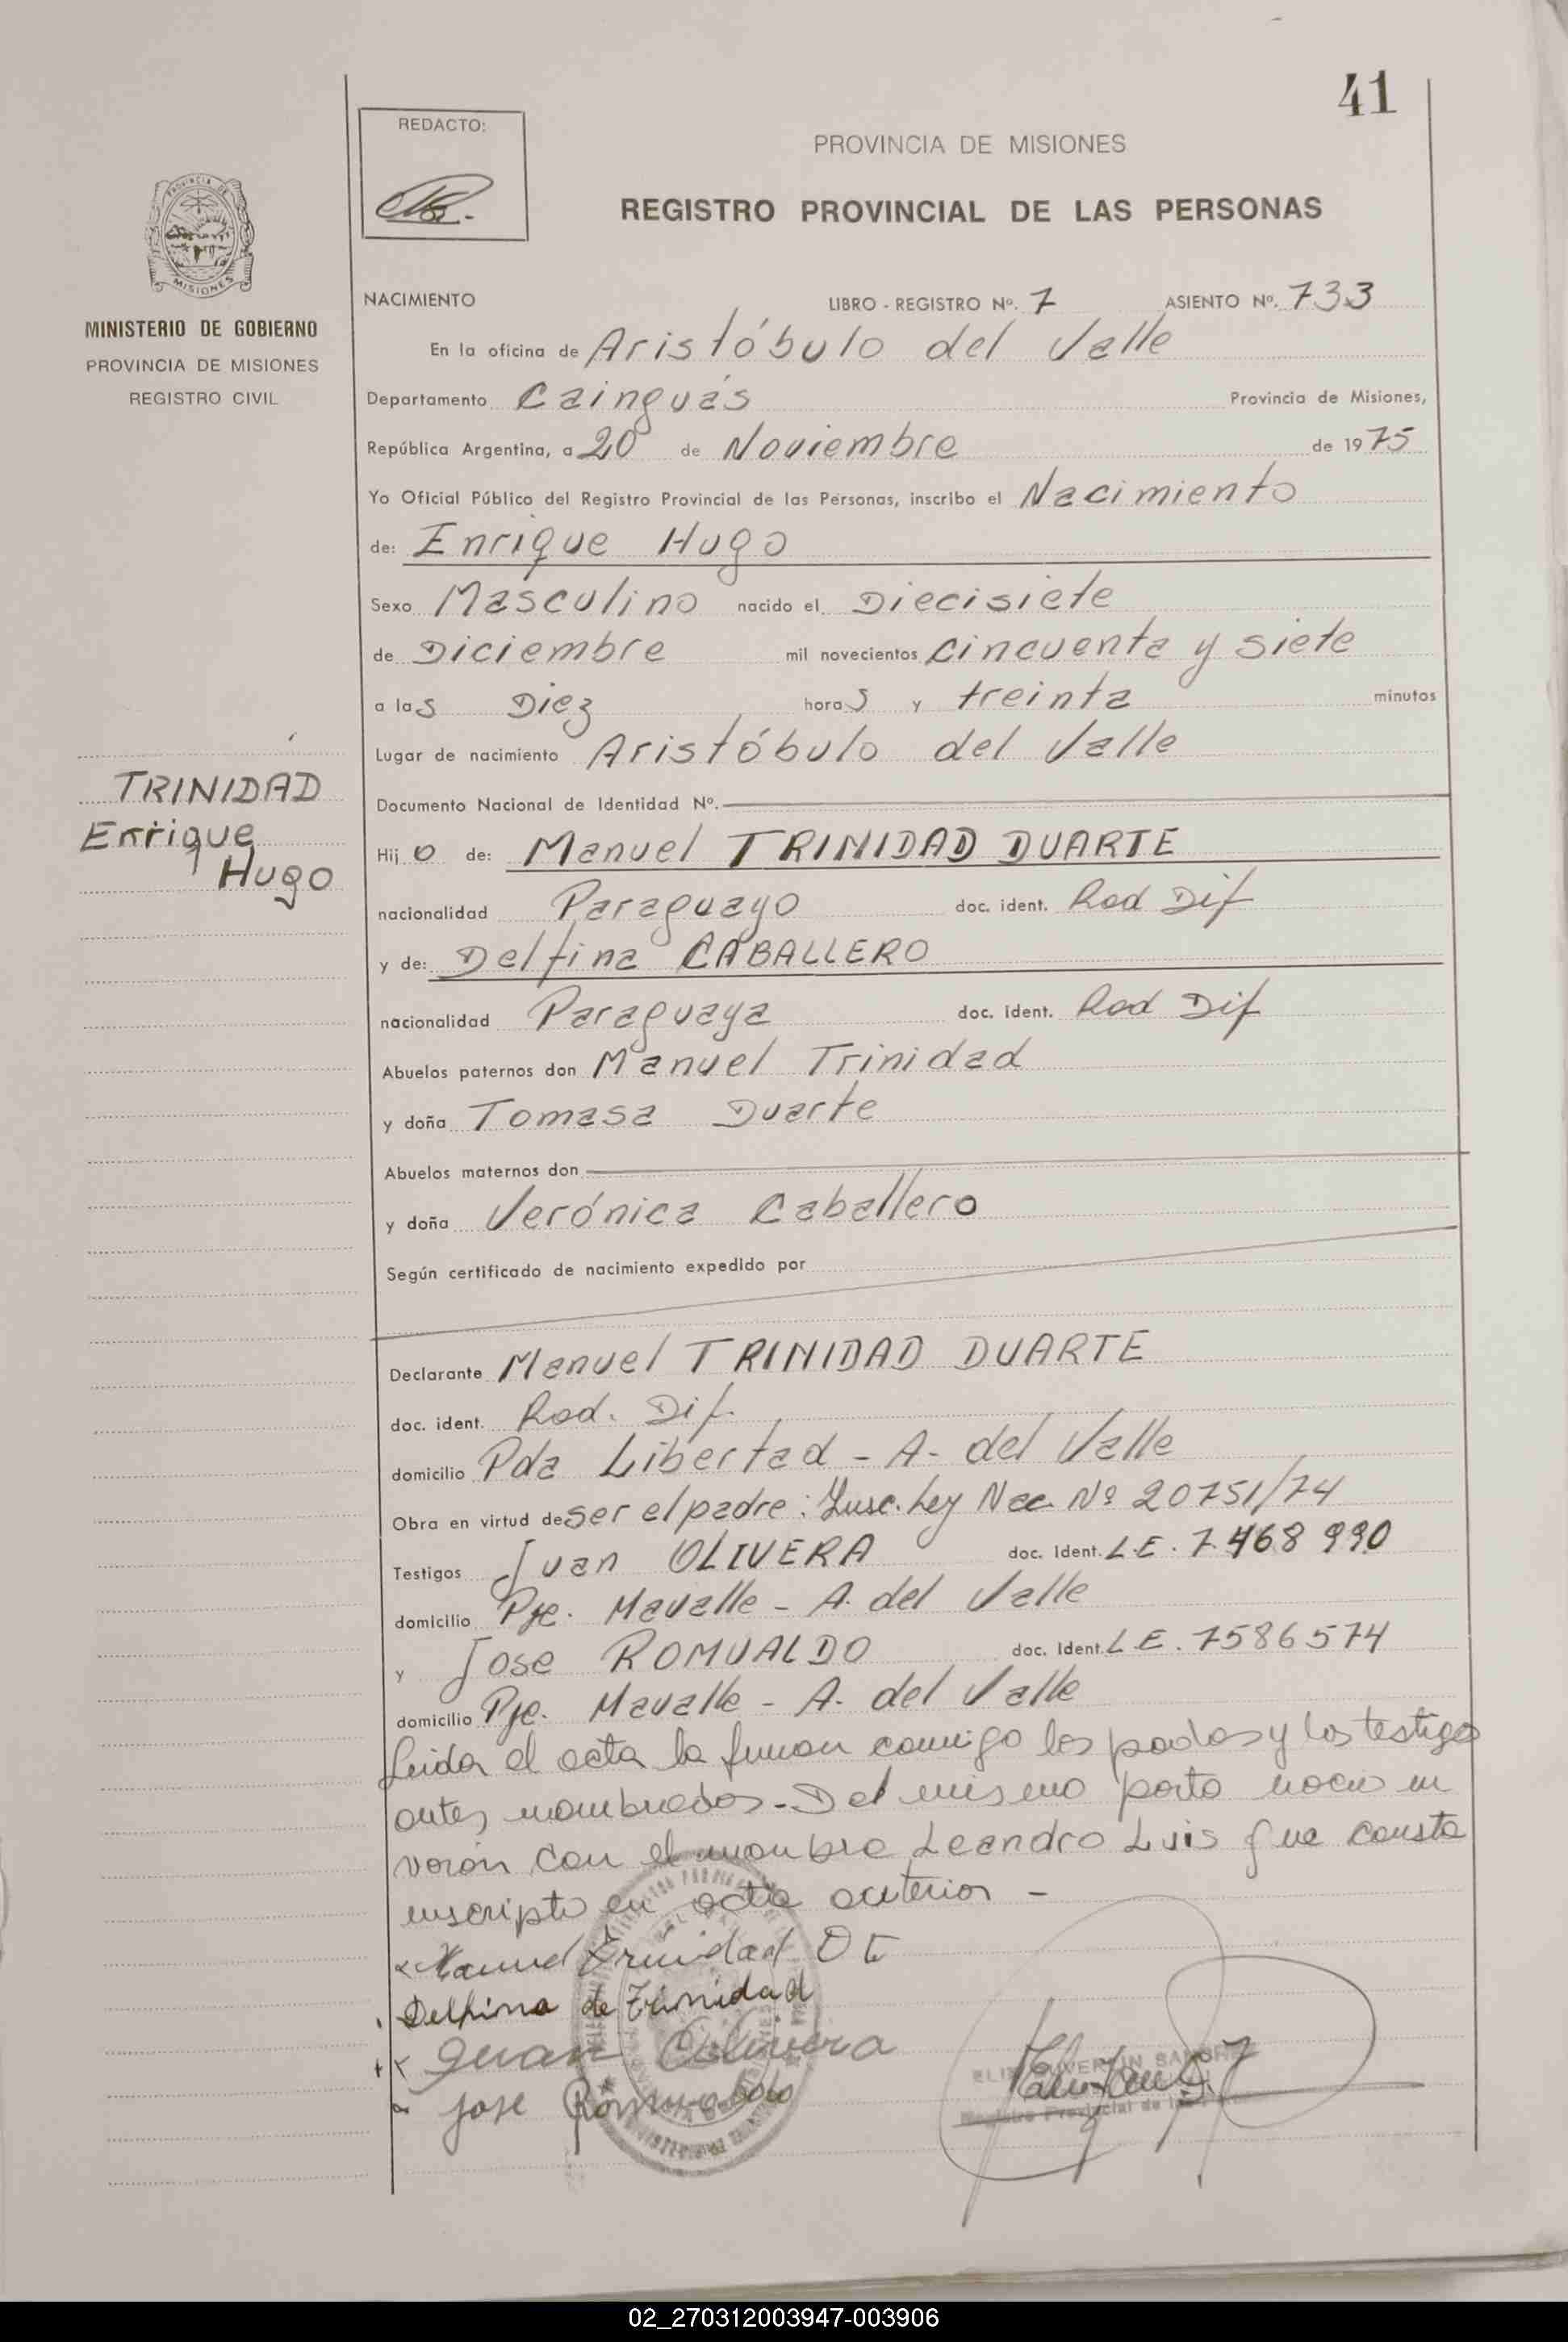 41
REDACTO:
PROVINCIA DE MISIONES
REGISTRO PROVINCIAL DE LAS PERSONAS
PROVINCIA DE
MISIONES
MINISTERIO DE GOBIERNO
PROVINCIA DE MISIONES
REGISTRO CIVIL
NACIMIENTO LIBRO - REGISTRO Nº. 7 ASIENTO Nº. 733
En la oficina de Aristóbulo del Valle
Departamento Cainguás Provincia de Misiones,
República Argentina, a 20 de Noviembre de 1975
Yo Oficial Público del Registro Provincial de las Personas, inscribo el Nacimiento
de: Enrique Hugo
Sexo Masculino nacido el Diecisiete
de Diciembre mil novecientos cincuenta y siete
a las Diez horas y treinta minutos
Lugar de nacimiento Aristóbulo del Valle
TRINIDAD
Enrique
Hugo
Documento Nacional de Identidad Nº.
Hijo de: Manuel TRINIDAD DUARTE
nacionalidad Paraguayo doc. ident. Rad Dif
y de: Delfina CABALLERO
nacionalidad Paraguaya doc. ident. Rad Dif
Abuelos paternos don Manuel Trinidad
y doña Tomasa Duarte
Abuelos maternos don
y doña Verónica Caballero
Según certificado de nacimiento expedido por
Declarante Manuel TRINIDAD DUARTE
doc. ident. Rad. Dif.
domicilio Pda Libertad - A. del Valle
Obra en virtud de ser el padre: Insc. Ley Nac. Nº 20751/74
Testigos Juan OLIVERA doc. Ident. L.E. 7.468 990
domicilio Pje. Mavalle - A. del Valle
y Jose ROMUALDO doc. Ident. L E. 7586574
domicilio Pje. Mavalle - A. del Valle
Leida el acta la firman conmigo los padres y los testigos
antes nombrados. - Del mismo parto nació un
varón con el nombre Leandro Luis que consta
inscripto en acta anterior -
Manuel Trinidad D
Delfina de Trinidad
Juan Olivera
Jose Romualdo
02_270312003947-003906